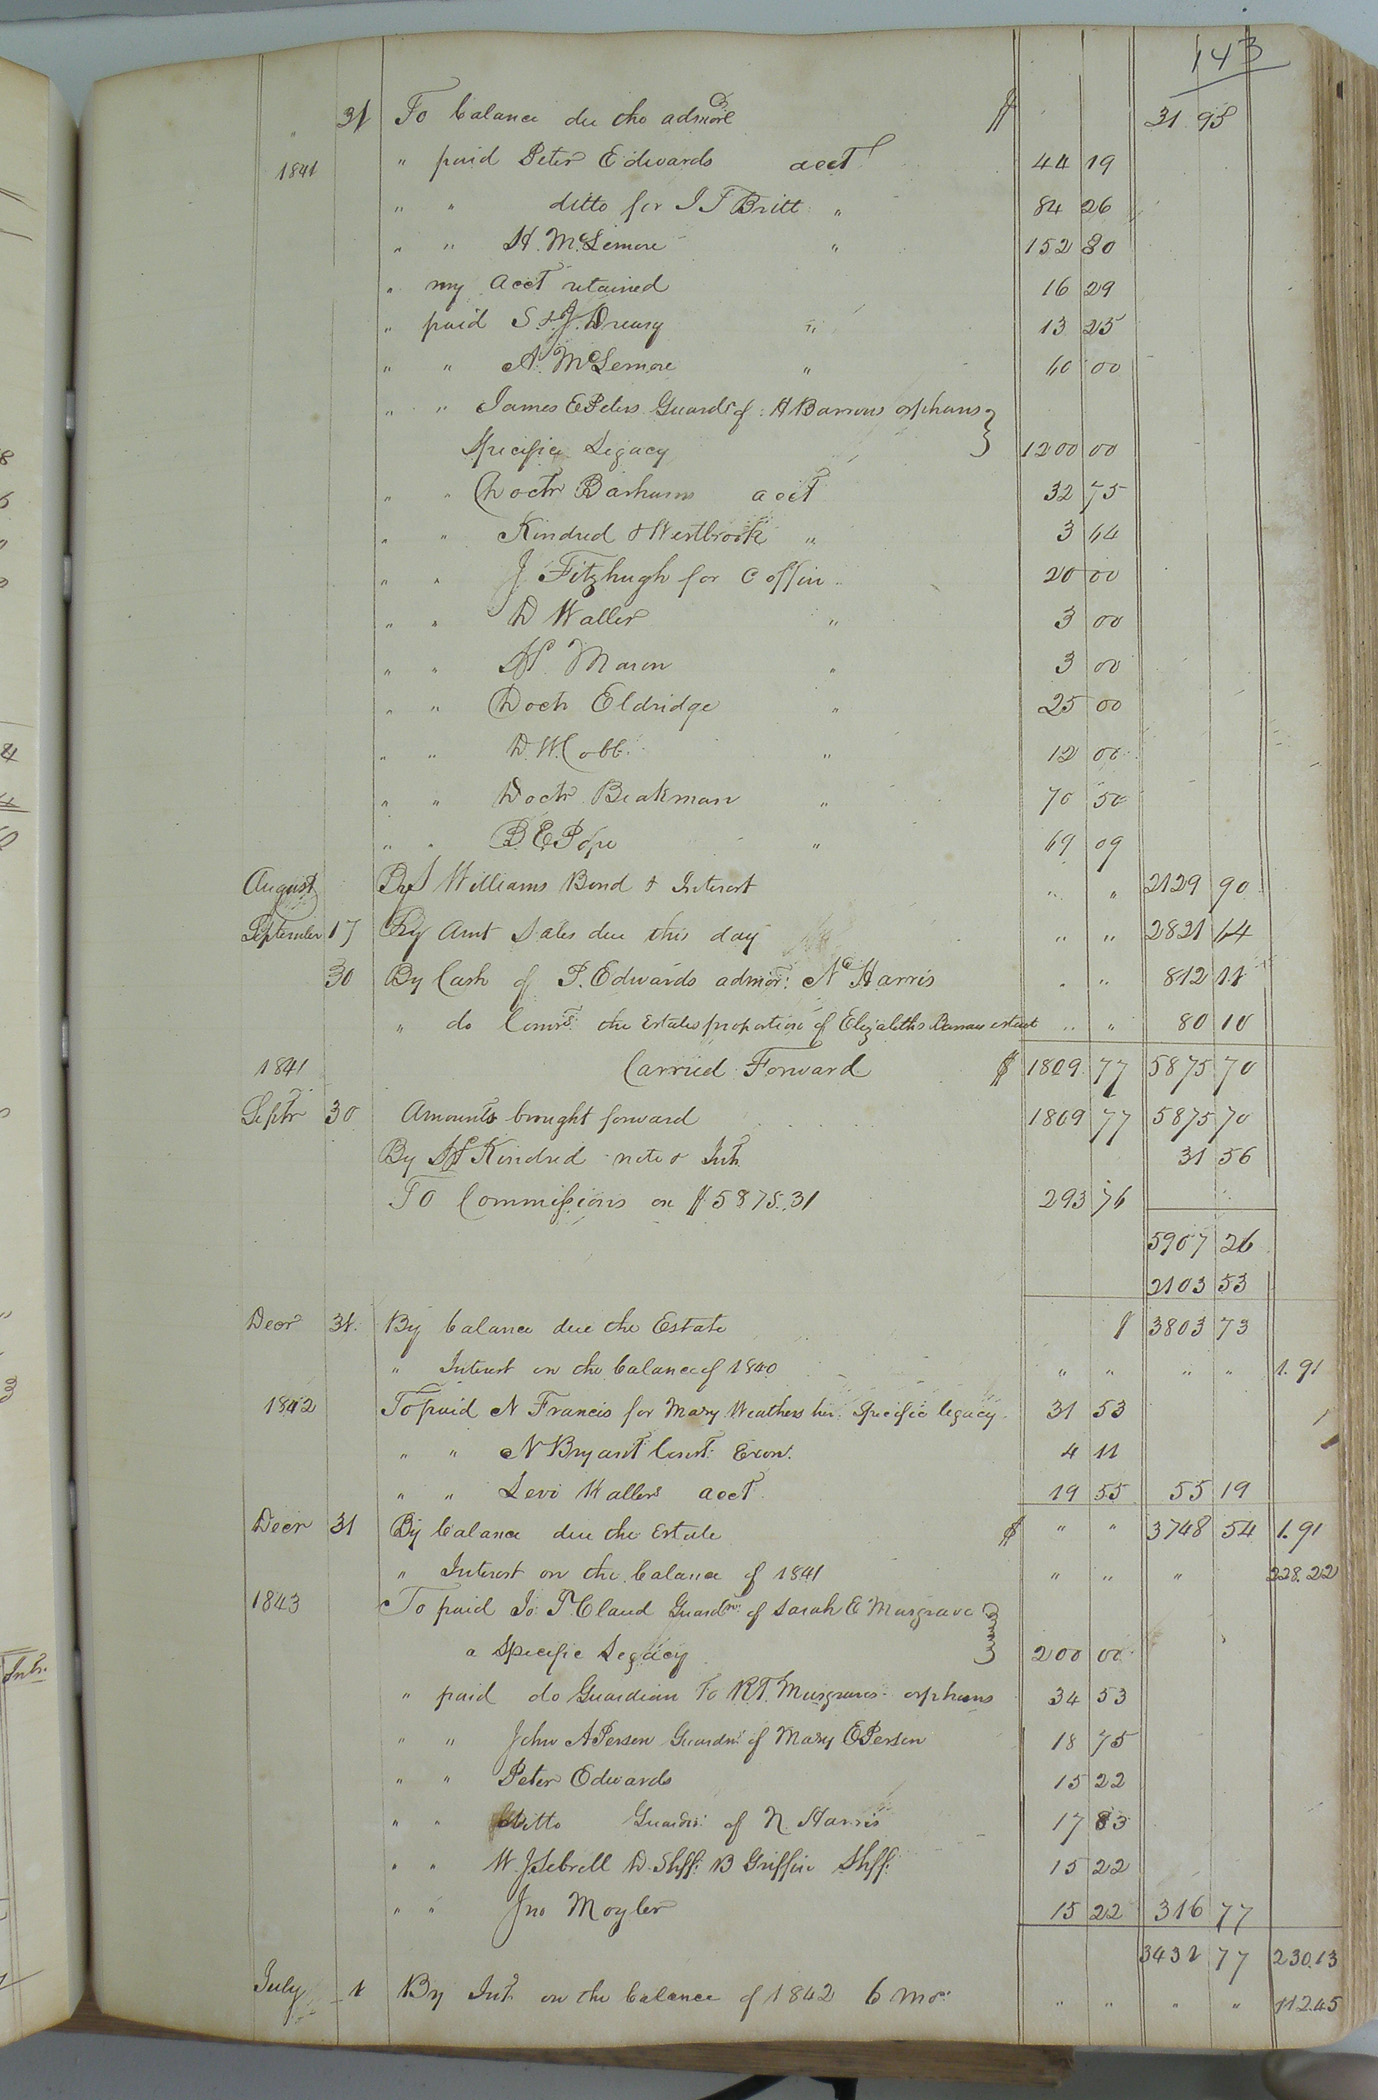 143
" 31 To balance due the admor $ 31 95
1841 " paid Peter Edwards acct 44 19
" " ditto for J T Britt " 84 26
" " H. McLemore " 152 80
" my acct retained 16 29
" paid S. & J. Drewry " 13 25
" " A. McLemore " 60 00
" " James E Peters Guardn of: H Barrows orphans
Specific Legacy 1200 00
" " Doctr Barhams acct 32 75
" " Kindred & Westbrook " 3 64
" " J. Fitzhugh for Coffin " 20 00
" " D Waller " 3 00
" " Mason " 3 00
" " Doctr Eldridge " 25 00
" " D. W. Cobb " 12 00
" " Doctr Beakman " 70 50
" " B E Pope " 69 09
August By J Williams Bond & Interest " " 2129 90
September 17 By Amt Sales due this day " " 2821 64
30 By Cash of P. Edwards admor: Nd Harris " " 812 11
" do Comrs: the Estates proportion of Elizabeths Barrow estate " " 80 10
1841 Carried Forward $ 1809 77 5875 70
Septr 30 Amounts brought forward 1809 77 5875 70
By Kindred note & Int. 31 56
To Commissions on $5875.31 293 76
5907 26
2103 53
Decr 31. By balance due the Estate $ 3803 73
" Interest on the balance of 1840 " " " " 1.91
1842 To paid N Francis for Mary Weathers her Specific legacy 31 53
" " N Bryant Const. Exon. 4 11
" " Levi Wallers acct 19 55 55 19
Decr 31 By balance due the Estate $ " " 3748 54 1.91
" Interest on the balance of 1841 " " " 228.22
1843 To paid Jo: T. Claud Guardn of Sarah E Musgrave
a Specific Legacy 200 00
" paid do Guardian to R T. Musgraves orphans 34 53
" " John A Person Guardn. of Mary E Person 18 75
" " Peter Edwards 15 22
" " ditto Guardn. of N. Harris 17 83
" " W. J. Sebrell D. Shff. B Griffin Shff. 15 22
" " Jno Moyler 15 22 316 77
3431 77 230.13
July 1 By Int. on the balance of 1842 6 mos. " " " " 112.45